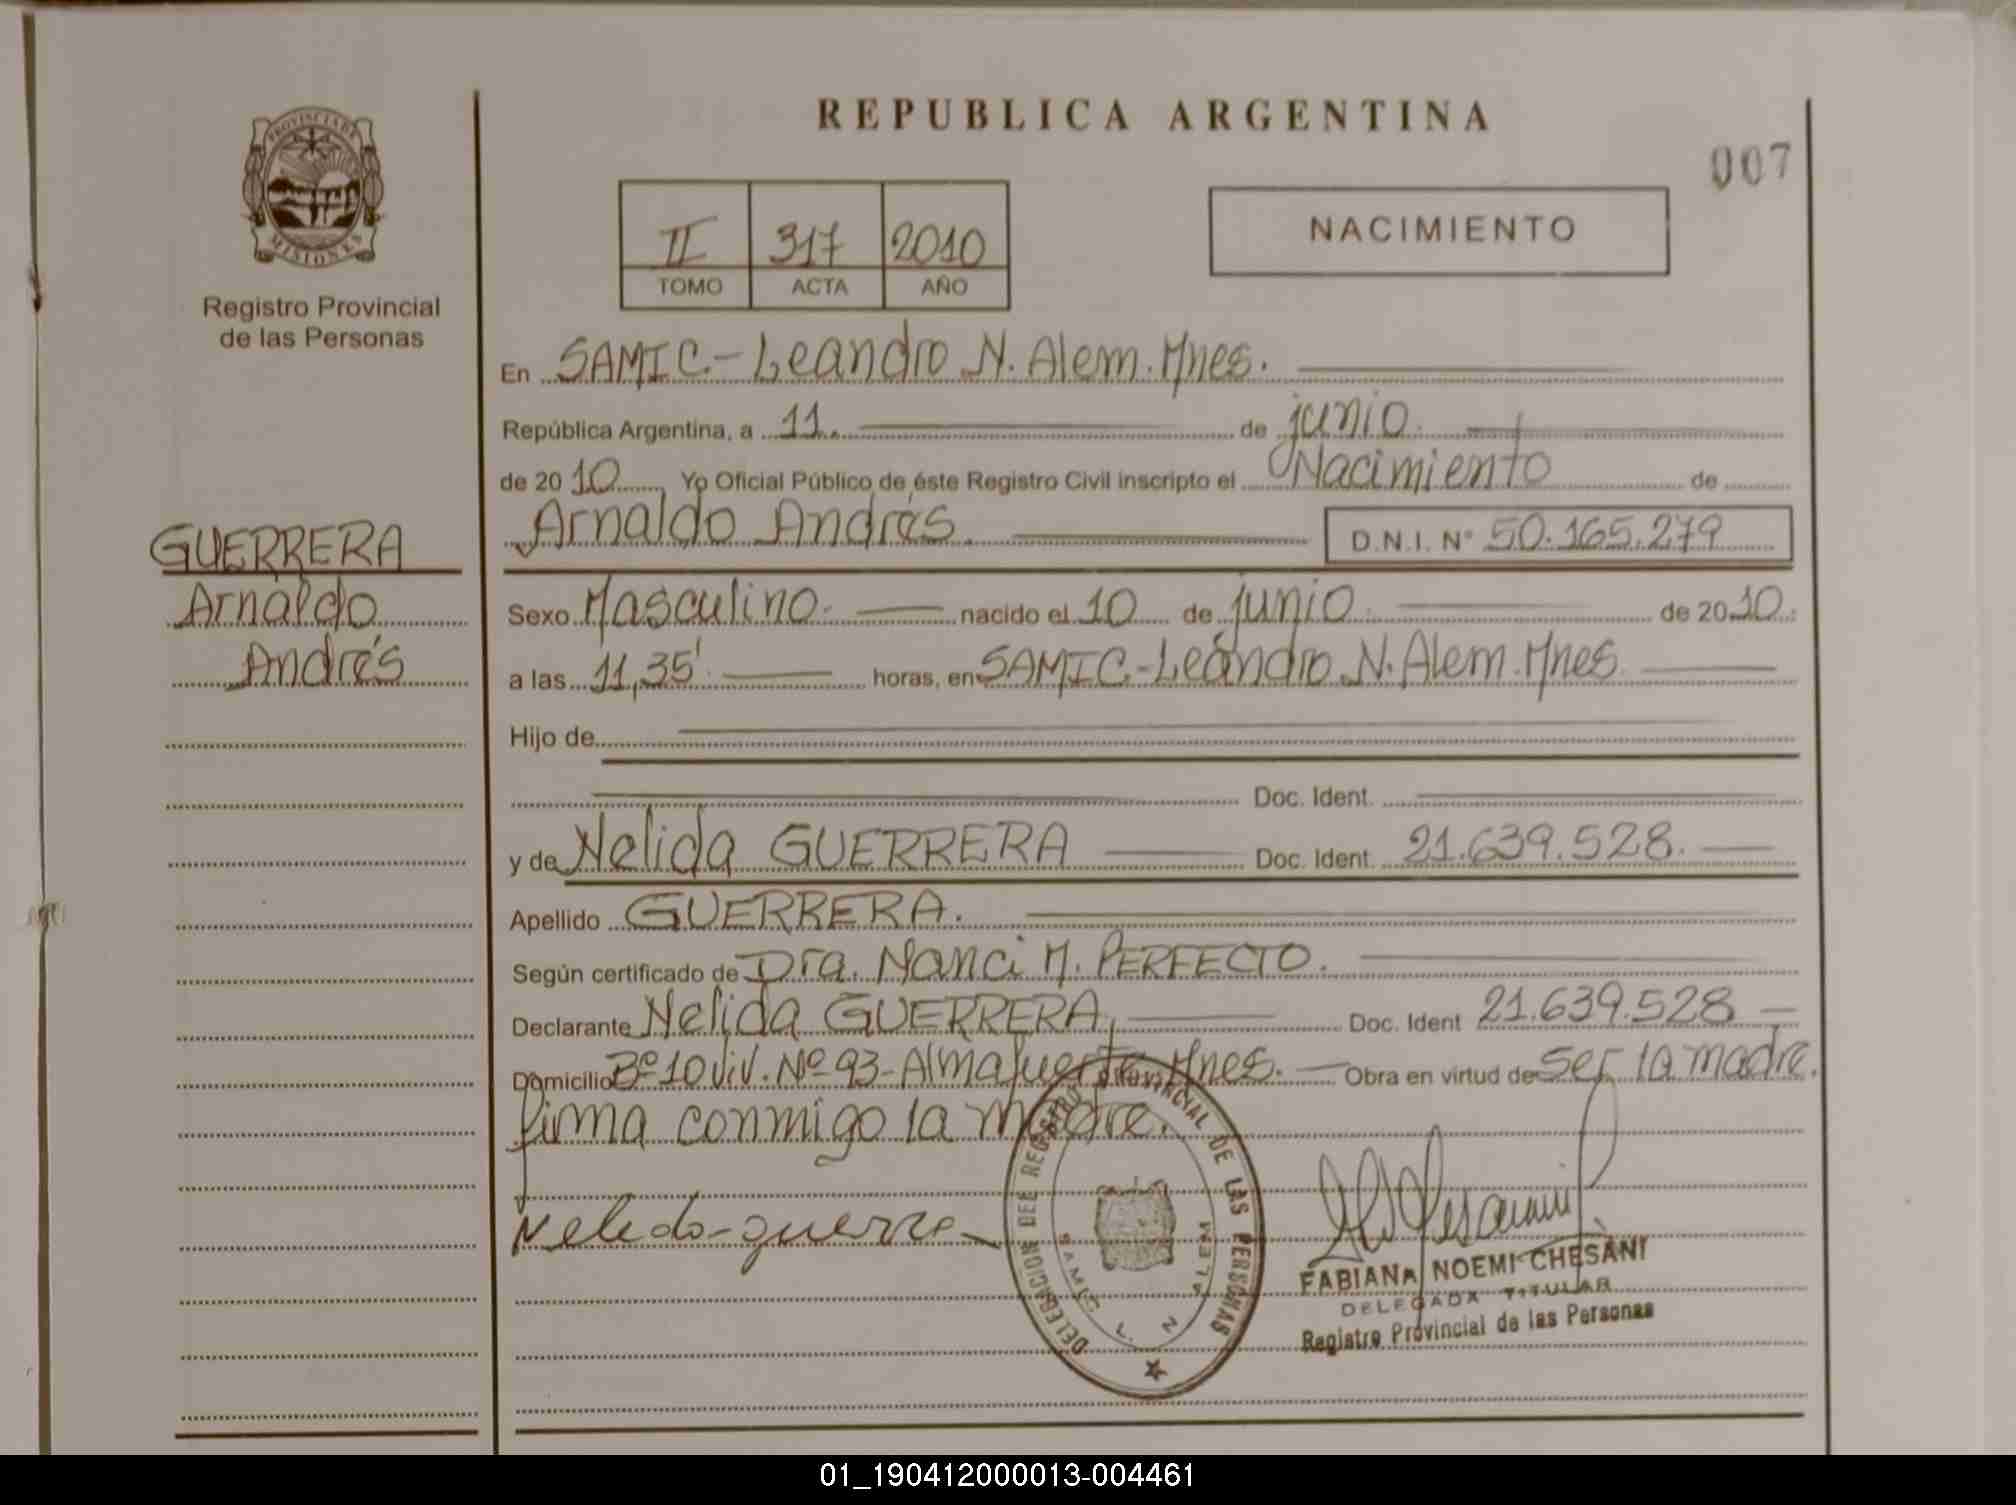 REPUBLICA ARGENTINA
007
PROVINCIA DE MISIONES
Registro Provincial
de las Personas
II 317 2010
TOMO ACTA AÑO
NACIMIENTO
En SAMIC-Leandro N. Alem. Mnes.
República Argentina, a 11. de junio.
de 2010 Yo Oficial Público de éste Registro Civil inscripto el Nacimiento de
Arnaldo Andrés. D.N.I. N° 50.165.279
GUERRERA
Arnaldo
Andrés
Sexo Masculino. nacido el 10 de junio. de 2010.
a las 11,35' horas, en SAMIC-Leandro N. Alem. Mnes.
Hijo de
Doc. Ident.
y de Nelida GUERRERA Doc. Ident. 21.639.528.
Apellido GUERRERA.
Según certificado de Dra. Nanci M. PERFECTO.
Declarante Nelida GUERRERA, Doc. Ident 21.639.528
Domicilio Bº 10 Viv. Nº 93-Almafuerte. Mnes. Obra en virtud de ser la madre.
firma conmigo la madre.
DELEGACION DEL REGISTRO PROVINCIAL DE LAS PERSONAS
SAMIC L. N ALEM
FABIANA NOEMI CHESANI
DELEGADA TITULAR
Registro Provincial de las Personas
01_190412000013-004461